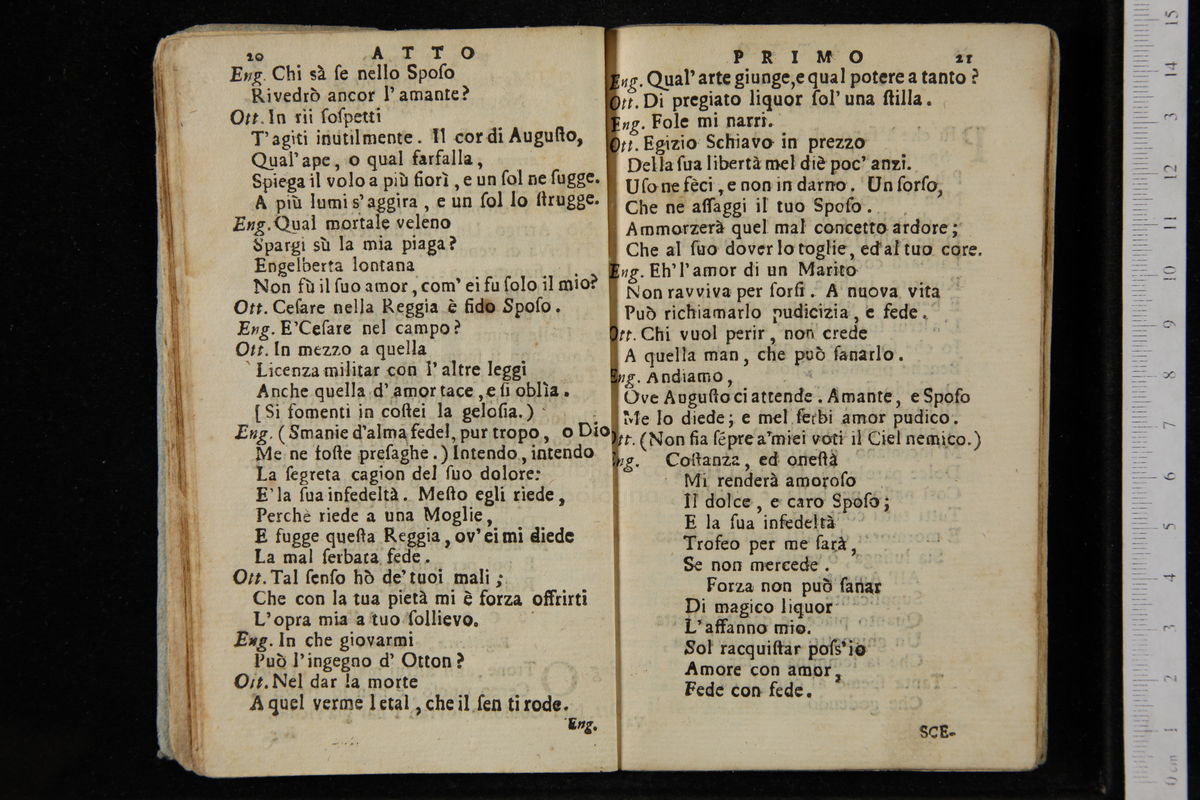 20 ATTO
Eng. Chi sà ſe nello Spoſo
Rivedrò ancor l'amante?
Ott. In rii ſoſpetti
T'agiti inutilmente. Il cor di Auguſto,
Qual'ape, o qual farfalla,
Spiega il volo a più fiori, e un ſol ne ſugge.
A più lumi s'aggira, e un ſol lo ſtrugge.
Eng. Qual mortale veleno
Spargi sù la mia piaga?
Engelberta lontana
Non fù il ſuo amor, com' ei fu ſolo il mio?
Ott. Ceſare nella Reggia è fido Spoſo.
Eng. E'Ceſare nel campo?
Ott. In mezzo a quella
Licenza militar con l'altre leggi
Anche quella d'amor tace, e ſi oblìa.
[Si fomenti in coſtei la geloſia.)
Eng. (Smanie d'alma fedel, pur tropo, o Dio
Me ne foſte preſaghe.) Intendo, intendo
La ſegreta cagion del ſuo dolore:
E'la ſua infedeltà. Meſto egli riede,
Perchè riede a una Moglie,
E fugge queſta Reggia, ov'ei mi diede
La mal ſerbata fede.
Ott. Tal ſenſo hò de'tuoi mali;
Che con la tua pietà mi è forza offrirti
L'opra mia a tuo ſollievo.
Eng. In che giovarmi
Può l'ingegno d'Otton?
Ott. Nel dar la morte
A quel verme letal, che il ſen ti rode.
Eng.
PRIMO 21
Eng. Qual'arte giunge, e qual potere a tanto?
Ott. Di pregiato liquor ſol'una ſtilla.
Eng. Fole mi narri.
Ott. Egizio Schiavo in prezzo
Della ſua libertà mel diè poc'anzi.
Uſo ne fèci, e non in darno. Un ſorſo,
Che ne aſſaggi il tuo Spoſo.
Ammorzerà quel mal concetto ardore;
Che al ſuo dover lo toglie, ed al tuo core.
Eng. Eh'l'amor di un Marito
Non ravviva per ſorſi. A nuova vita
Può richiamarlo pudicizia, e fede.
Ott. Chi vuol perir, non crede
A quella man, che può ſanarlo.
Eng. Andiamo,
Ove Auguſto ci attende. Amante, e Spoſo
Me lo diede; e mel ſerbi amor pudico.
Ott. (Non fia sẽpre a'miei voti il Ciel nemico.)
Eng. Coſtanza, ed oneſtà
Mi renderà amoroſo
Il dolce, e caro Spoſo;
E la ſua infedeltà
Trofeo per me ſarà,
Se non mercede.
Forza non può ſanar
Di magico liquor
L'affanno mio.
Sol racquiſtar poſs'io
Amore con amor,
Fede con fede.
SCE-